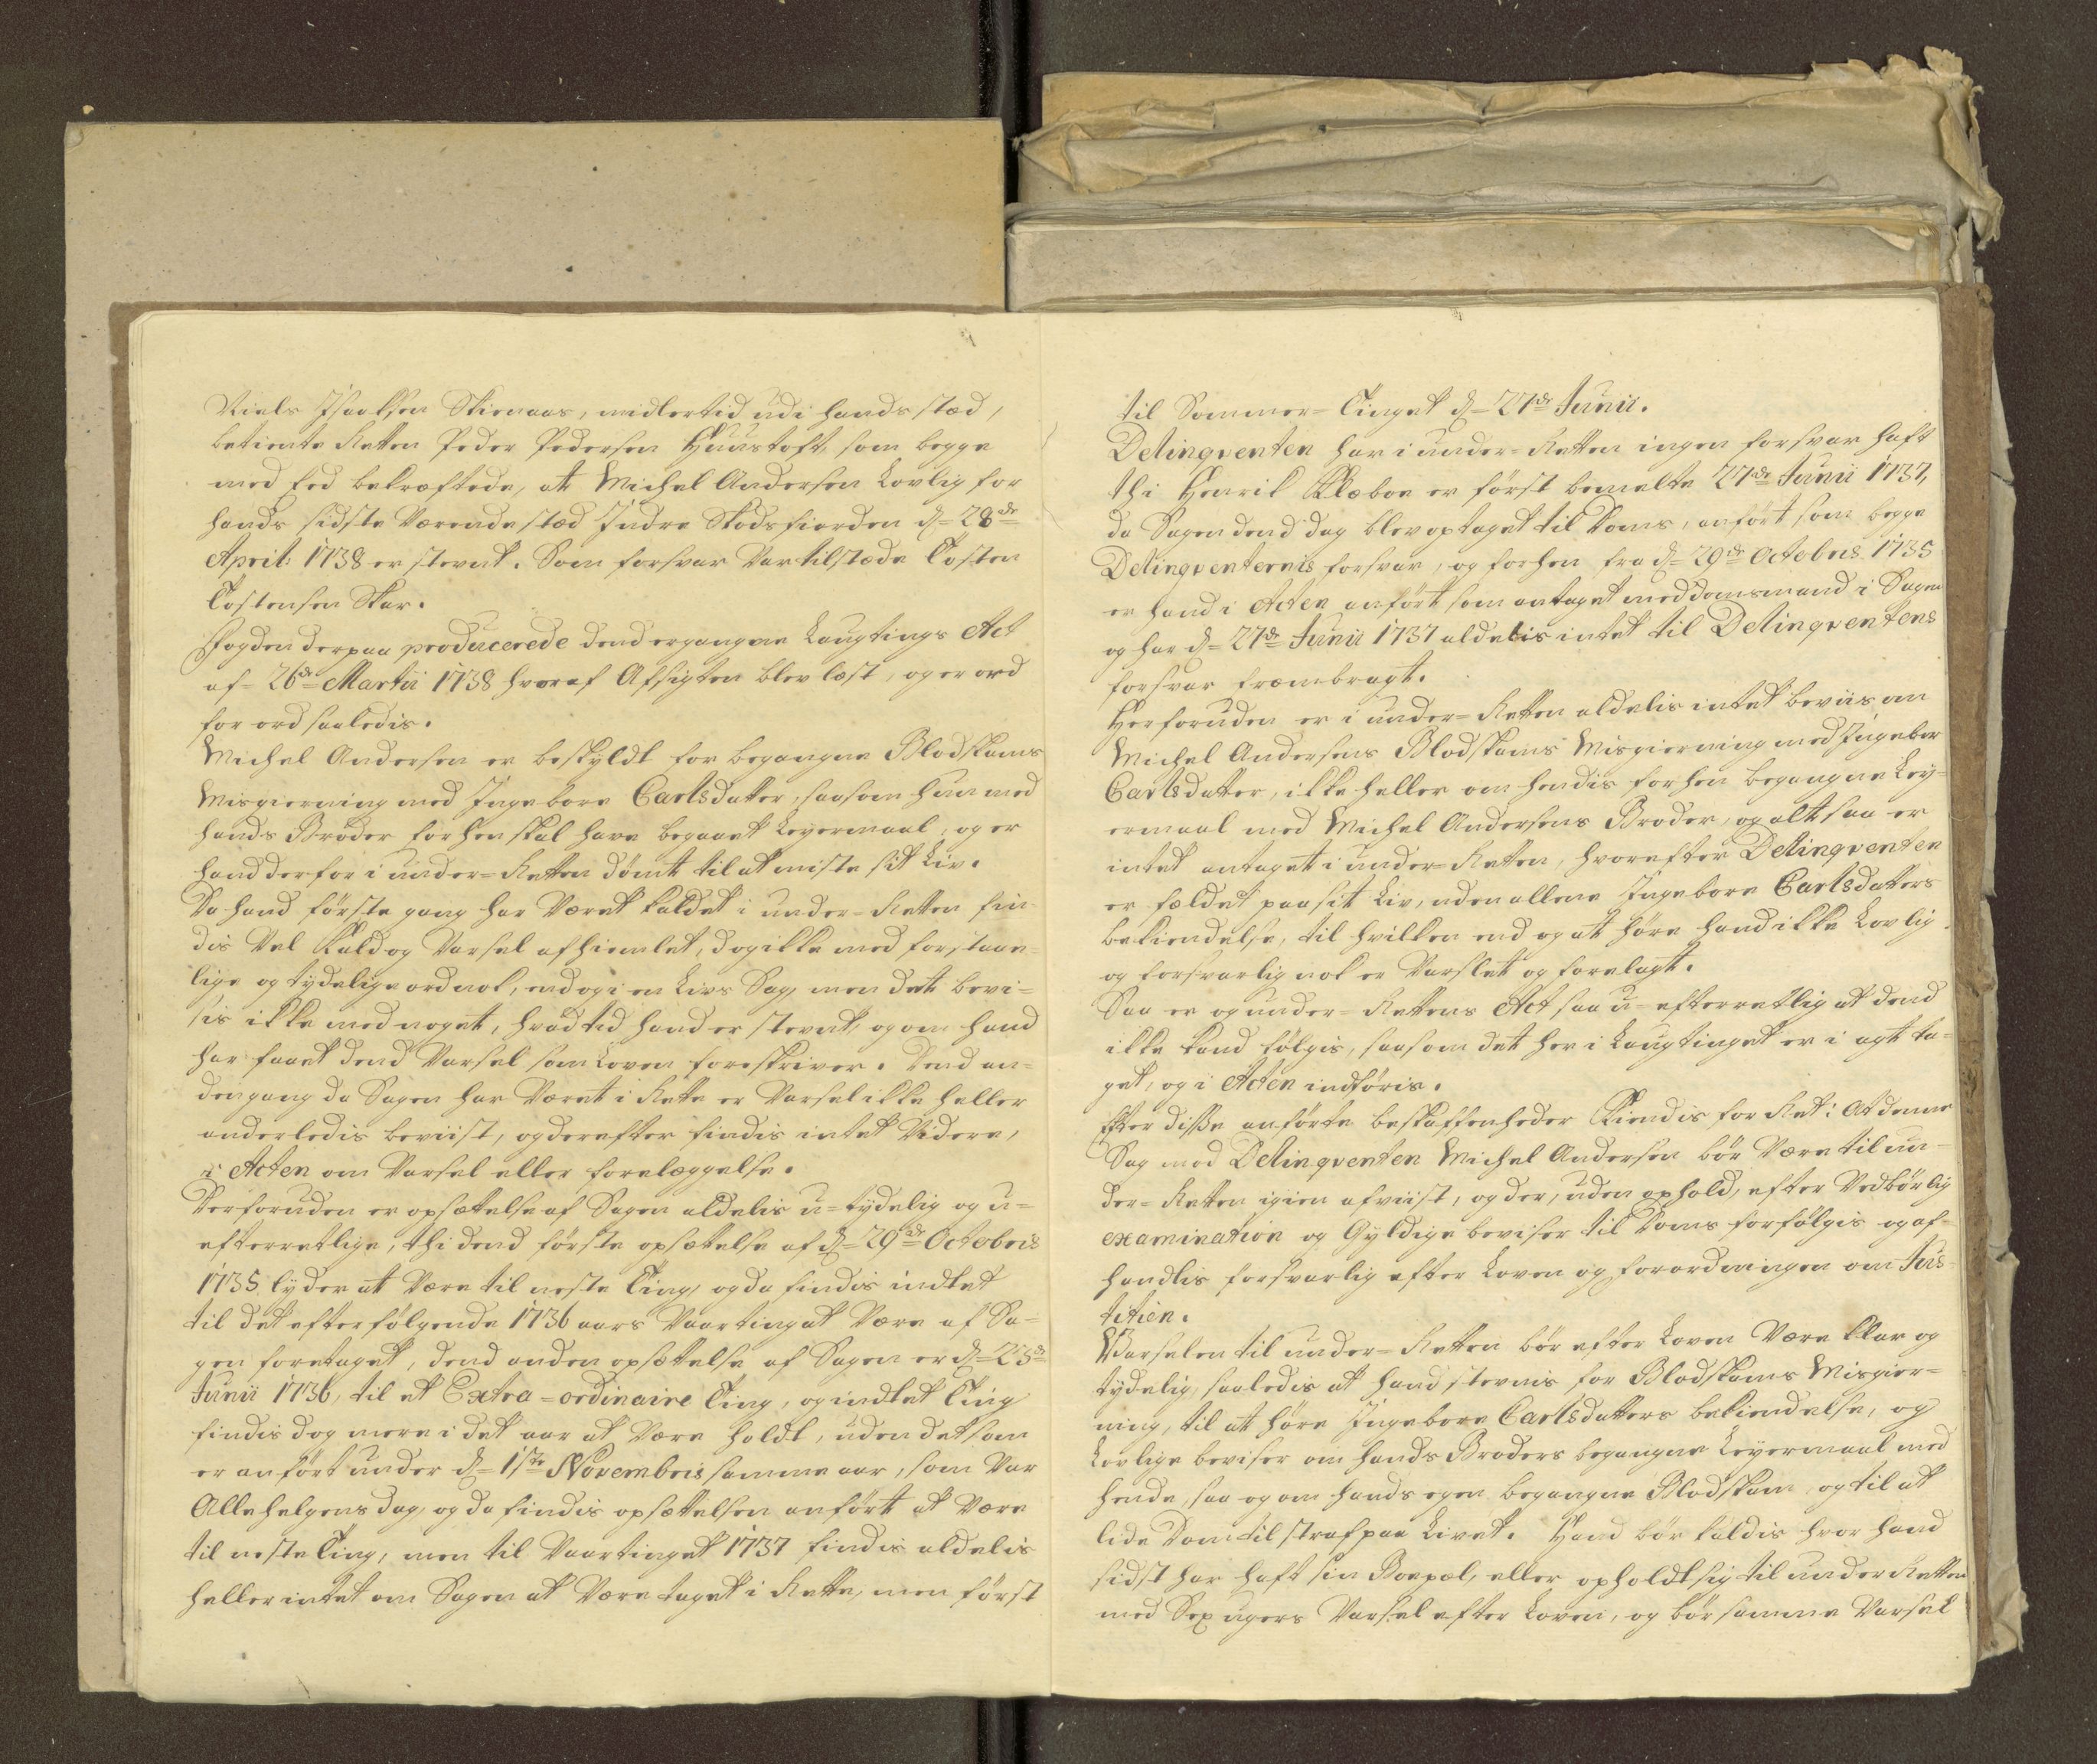 Niels Isaksen Skienaas, midlertid udi hands stæd,
betiente Retten Peder Pedersen Huustoft, som begge
med Eed bekræftede, at Michel Andersen Lovlig for
hands sidste Værende stæd Indre Skodsfiorden d= 28de
April: 1738 er stevnt. Som forsvar Var tilstæde Tosten
Tostensen Skar.
Fogden derpaa producerede dend ergangne Laugtings Act
af= 26de Martii 1738 hvoraf Afsigten blev læst, og er ord
for ord saaledis.
Michel Andersen er beskyldt for begangne Blodskams
Misgierning med Ingebore Carlsdatter, saasom hun med
hands Broder forhen skal have begaaet Leyermaal, og er
hand derfor i under=Retten dömt til at miste sit Liv.
Da hand förste gang har Været kaldet i under=Retten fin-
dis Vel Kald og Varsel afhiemlet, dog ikke med forstaae-
lige og tydelige ord nok, endog i en Livs Sag, men det bevi=
sis ikke med noget, hvad tid hand er stevnt, og om hand
har faaet dend Varsel som Loven foreskriver. Dend an=
den gang da Sagen har Været i Rette er Varsel ikke heller
anderledis beviist, og derefter findis intet Videre,
i Acten om Varsel eller forelæggelse.
Derforuden er opsættelse af Sagen aldelis u=tydelig og u=
efterretlige, thi dend förste opsættelse af d= 29de Octobris
1735 lyder at Være til neste Ting, og da findis indtet
til det efterfölgende 1736 aars Vaartinget Være af Sa=
gen foretaget, dend anden opsættelse af Sagen er d= 25de
Junii 1736, til et Extra=ordinaire Ting, og indtet Ting
findis dog mere i det aar at Være holdt, uden det som
er anfört under d= 1ste Novembris samme aar, som Var
Allehelgens dag, og da findis opsættelsen anfört at Være
til neste Ting, men til Vaartinget 1737 findis aldelis
heller intet om Sagen at Være taget i Rette, men först
til Sommer=Tinget d= 27de Junii.
Delinqventen har i under=Retten ingen forsvar haft
thi Henrik Klæboe er först bemelte 27de Junii 1737,
da Sagen dend dag blev optaget til Doms, anfört som begge
Delinqventernis forsvar, og forhen fra d= 29de Octobris 1735
er hand i Acten anfört som antaget meddomsmand i Sagen
og har d= 27de Junii 1737 aldelis intet til Delinqventens
forsvar frembragt.
Herforuden er i under=Retten aldelis intet beviis om
Michel Andersens Blodskams Misgierning med Ingebor
Carlsdatter, ikke heller om hendis forhen begangne Ley=
ermaal med Michel Andersens Broder, og altsaa er
intet antaget i under=Retten, hvorefter Delinqventen
er fældet paa sit Liv, uden allene Ingebore Carlsdatters
bekiendelse, til hvilken end og at höre hand ikke Lovlig
og forsvarlig nok er Varslet og forelagt.
Saa er og under=Rettens Act saa u=efterretlig at dend
ikke kand fölgis, saasom det her i Laugtinget er i agt ta=
get, og i Acten indföris.
Efter disse anförte beskaffenheder Kiendis for Ret: At denne
Sag mod Delinqventen Michel Andersen bör Være til un-
der=Retten igien afviist, og der, uden ophold, efter Vedbörlig
examination og Gyldige beviser til Doms forfölgis og af-
handlis forsvarlig efter Loven og forordningen om Jus-
titien.
Varselen til under=Retten bör efter Loven Være klar og
tydelig, saaledis at hand stevnis for Blodskams Misgier=
ning, til at höre Ingebore Carlsdatters bekiendelse, og
Lovlige beviser om hands Broders begangne Leyermaal med
hende, saa og om hands egen begangne Blodskam, og til at
lide Dom til straf paa Livet. Hand bör kaldis hvor hand
sidst har haft sin Boepæl, eller opholdt sig til under Retten
med Sex ugers Varsel efter Loven, og bör samme Varsel